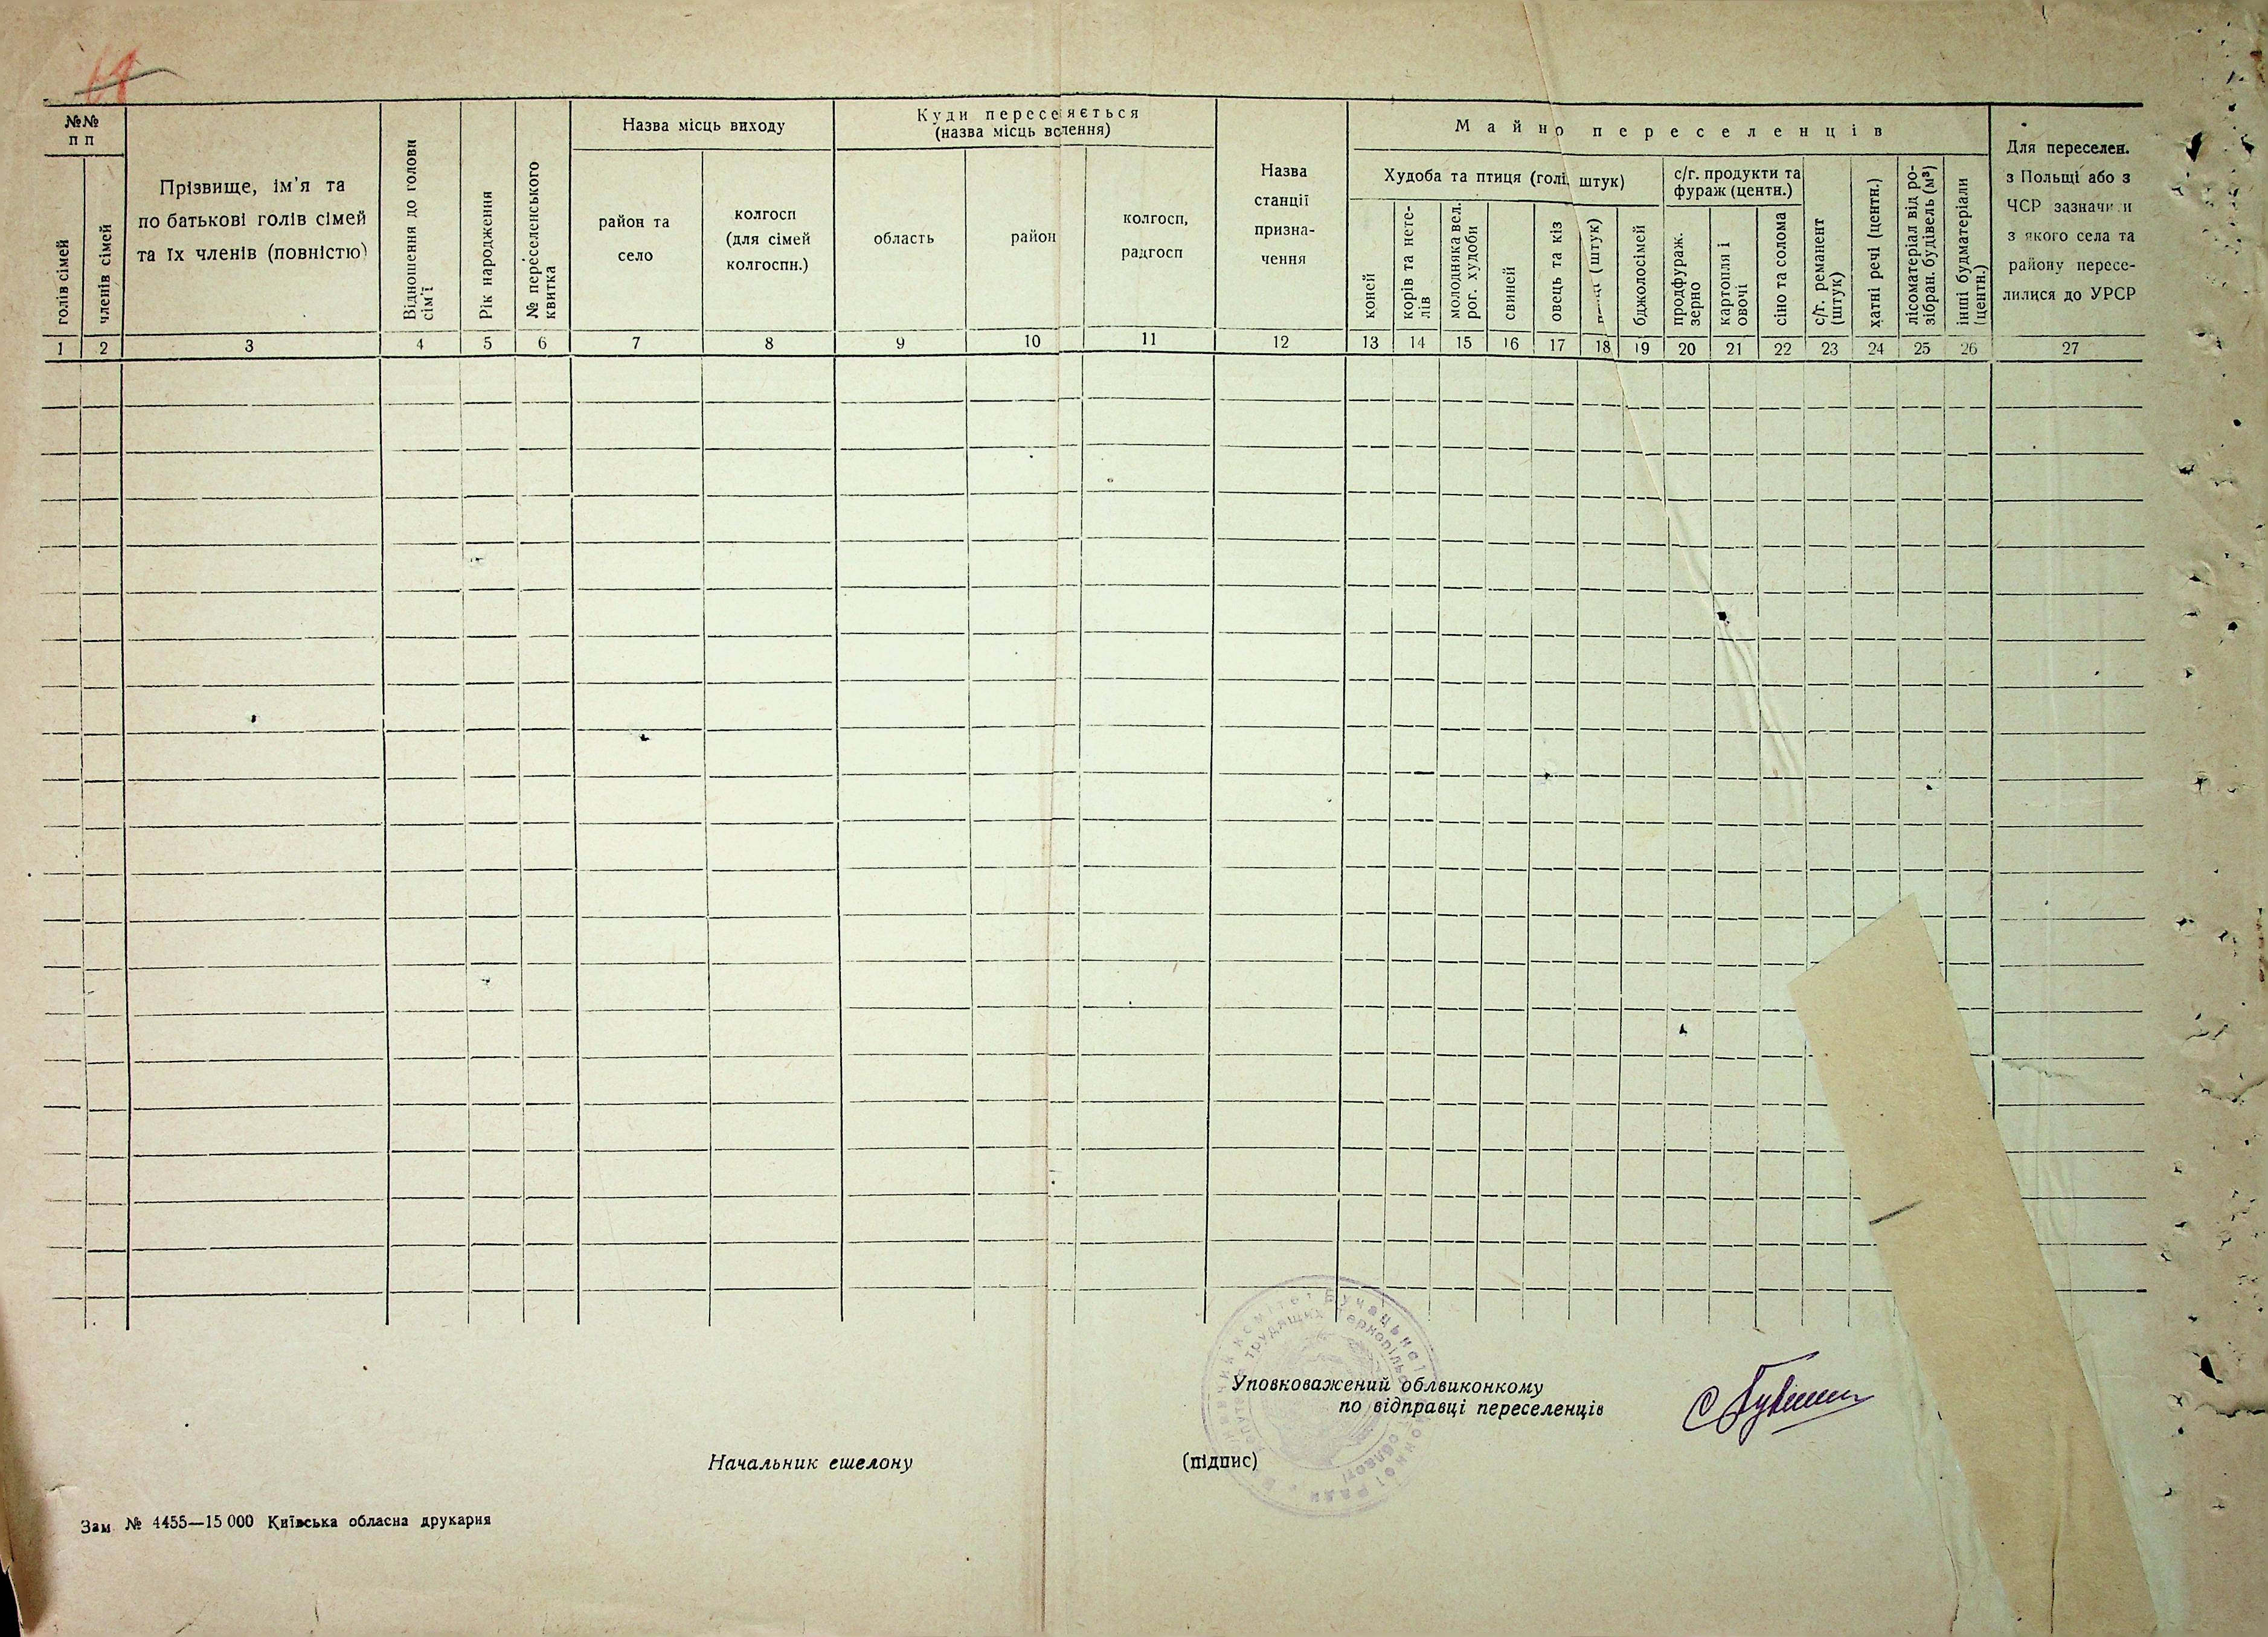 №№
п п
голів сімей
членів сімей
Прізвище, ім'я та
по батькові голів сімей
та їх членів (повністю)
Відношення до голови
сім'ї
Рік народження
№ переселенського
квитка
Назва місць виходу
район та
село
колгосп
(для сімей
колгоспн.)
Куди переселяється
(назва місць вселення)
область
район
колгосп,
радгосп
Назва
станції
призна-
чення
Майно переселенців
Худоба та птиця (голів, штук)
коней
корів та нете-
лів
молодняка вел.
рог. худоби
свиней
овець та кіз
птиці (штук)
бджолосімей
с/г. продукти та
фураж (центн.)
продфураж.
зерно
картопля і
овочі
сіно та солома
с/г. реманент
(штук)
хатні речі (центн.)
лісоматеріал від ро-
зібран. будівель (м³)
інші будматеріали
(центн.)
Для переселен.
з Польщі або з
ЧСР зазначити
з якого села та
району пересе-
лилися до УРСР
1 2 3 4 5 6 7 8 9 10 11 12 13 14 15 16 17 18 19 20 21 22 23 24 25 26 27
Уповноважений облвиконкому
по відправці переселенців
Начальник ешелону
(підпис)
Зам № 4455—15 000 Київська обласна друкарня